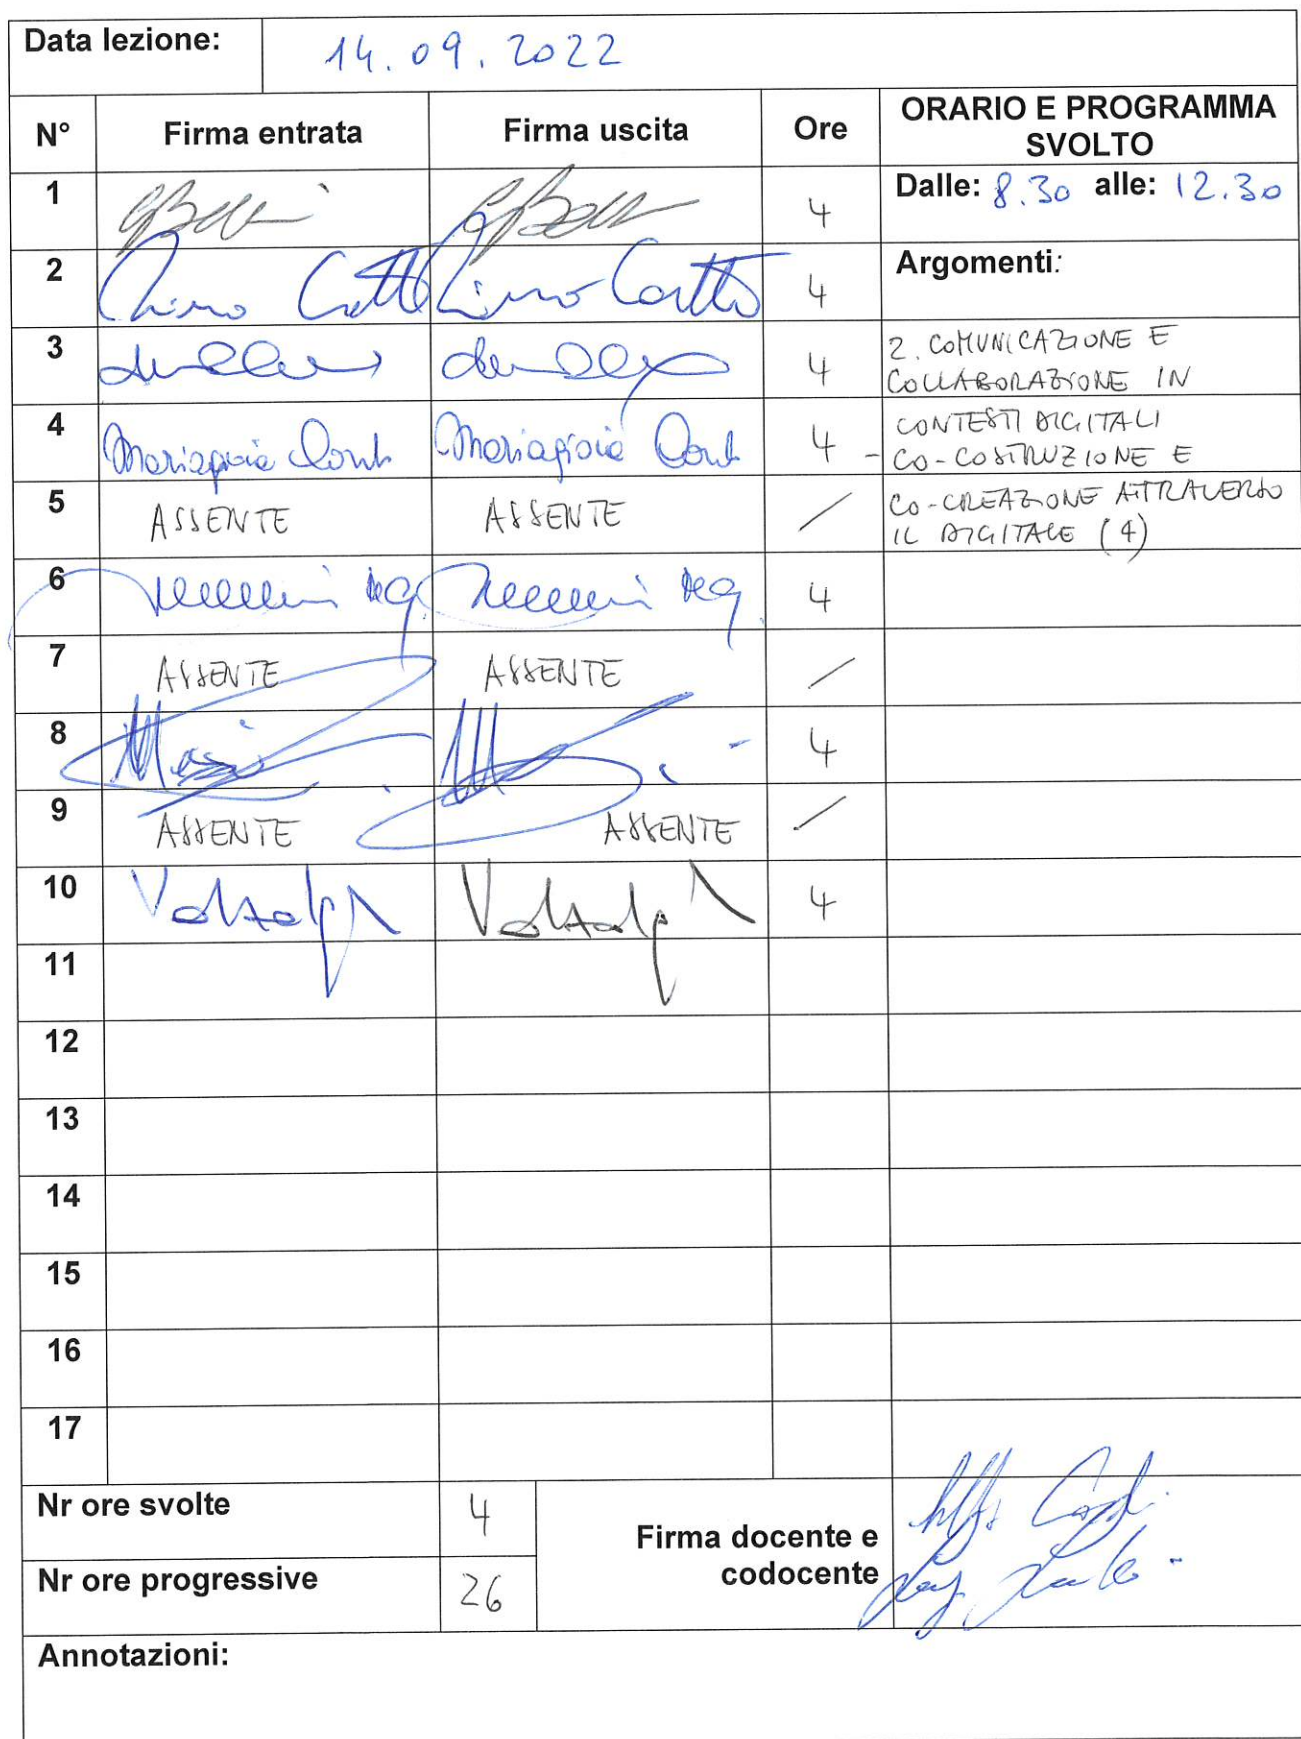 Data lezione: 14.09.2022
N° Firma entrata Firma uscita Ore ORARIO E PROGRAMMA SVOLTO
1 4 Dalle: 8.30 alle: 12.30
2 4 Argomenti:
3 4 2. COMUNICAZIONE E
COLLABORAZIONE IN
4 Mariagioia Mariagioia 4 CONTESTI DIGITALI
- CO-COSTRUZIONE E
5 ASSENTE ASSENTE / CO-CREAZIONE ATTRAVERSO
IL DIGITALE (4)
6 4
7 ASSENTE ASSENTE /
8 4
9 ASSENTE ASSENTE /
10 4
11
12
13
14
15
16
17
Nr ore svolte 4
Firma docente e
codocente
Nr ore progressive 26
Annotazioni: